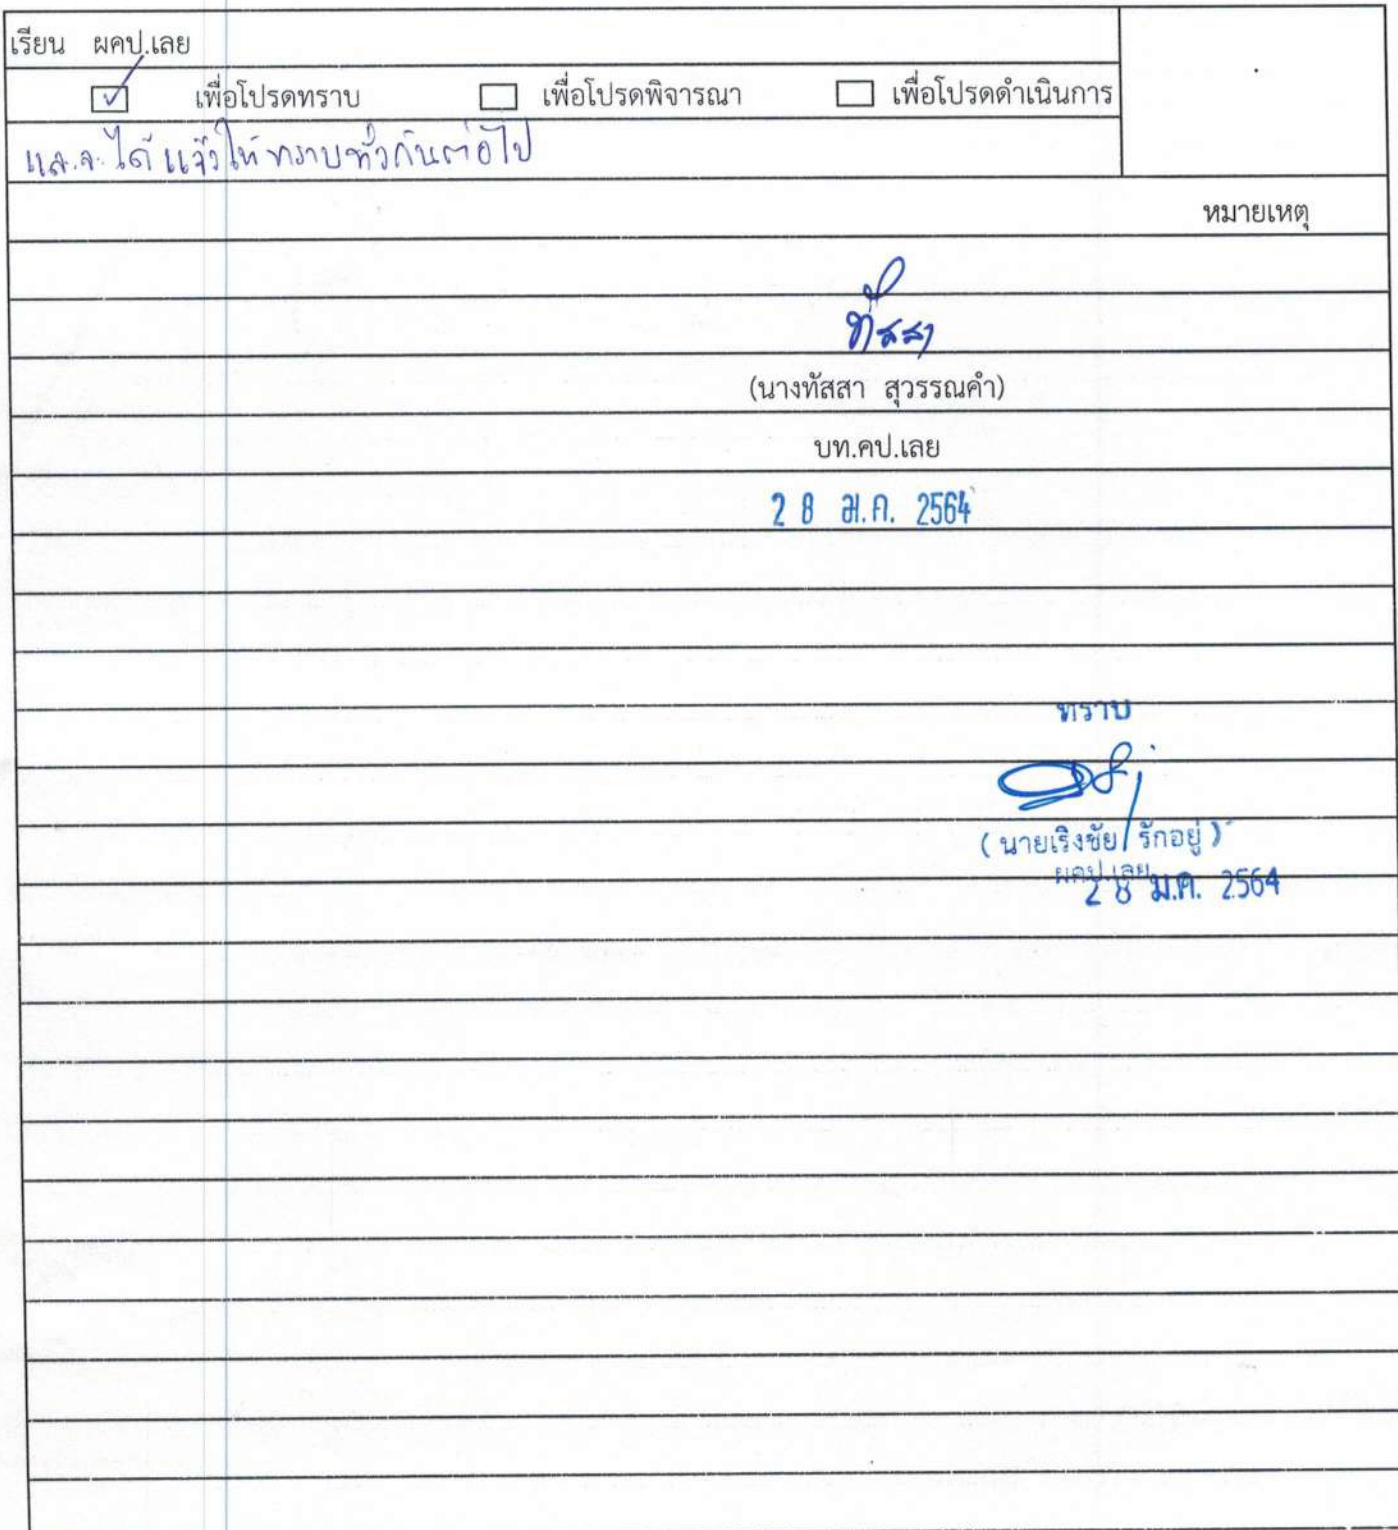 เรียน ผคป.เลย
☑ เพื่อโปรดทราบ ☐ เพื่อโปรดพิจารณา ☐ เพื่อโปรดดำเนินการ
และจะได้แจ้งให้ทราบทั่วกันต่อไป
หมายเหตุ
ทัสสา
(นางทัสสา สุวรรณคำ)
บท.คป.เลย
28 ม.ค. 2564
ทราบ
(นายเริงชัย รักอยู่)
ผคป.เลย
28 ม.ค. 2564